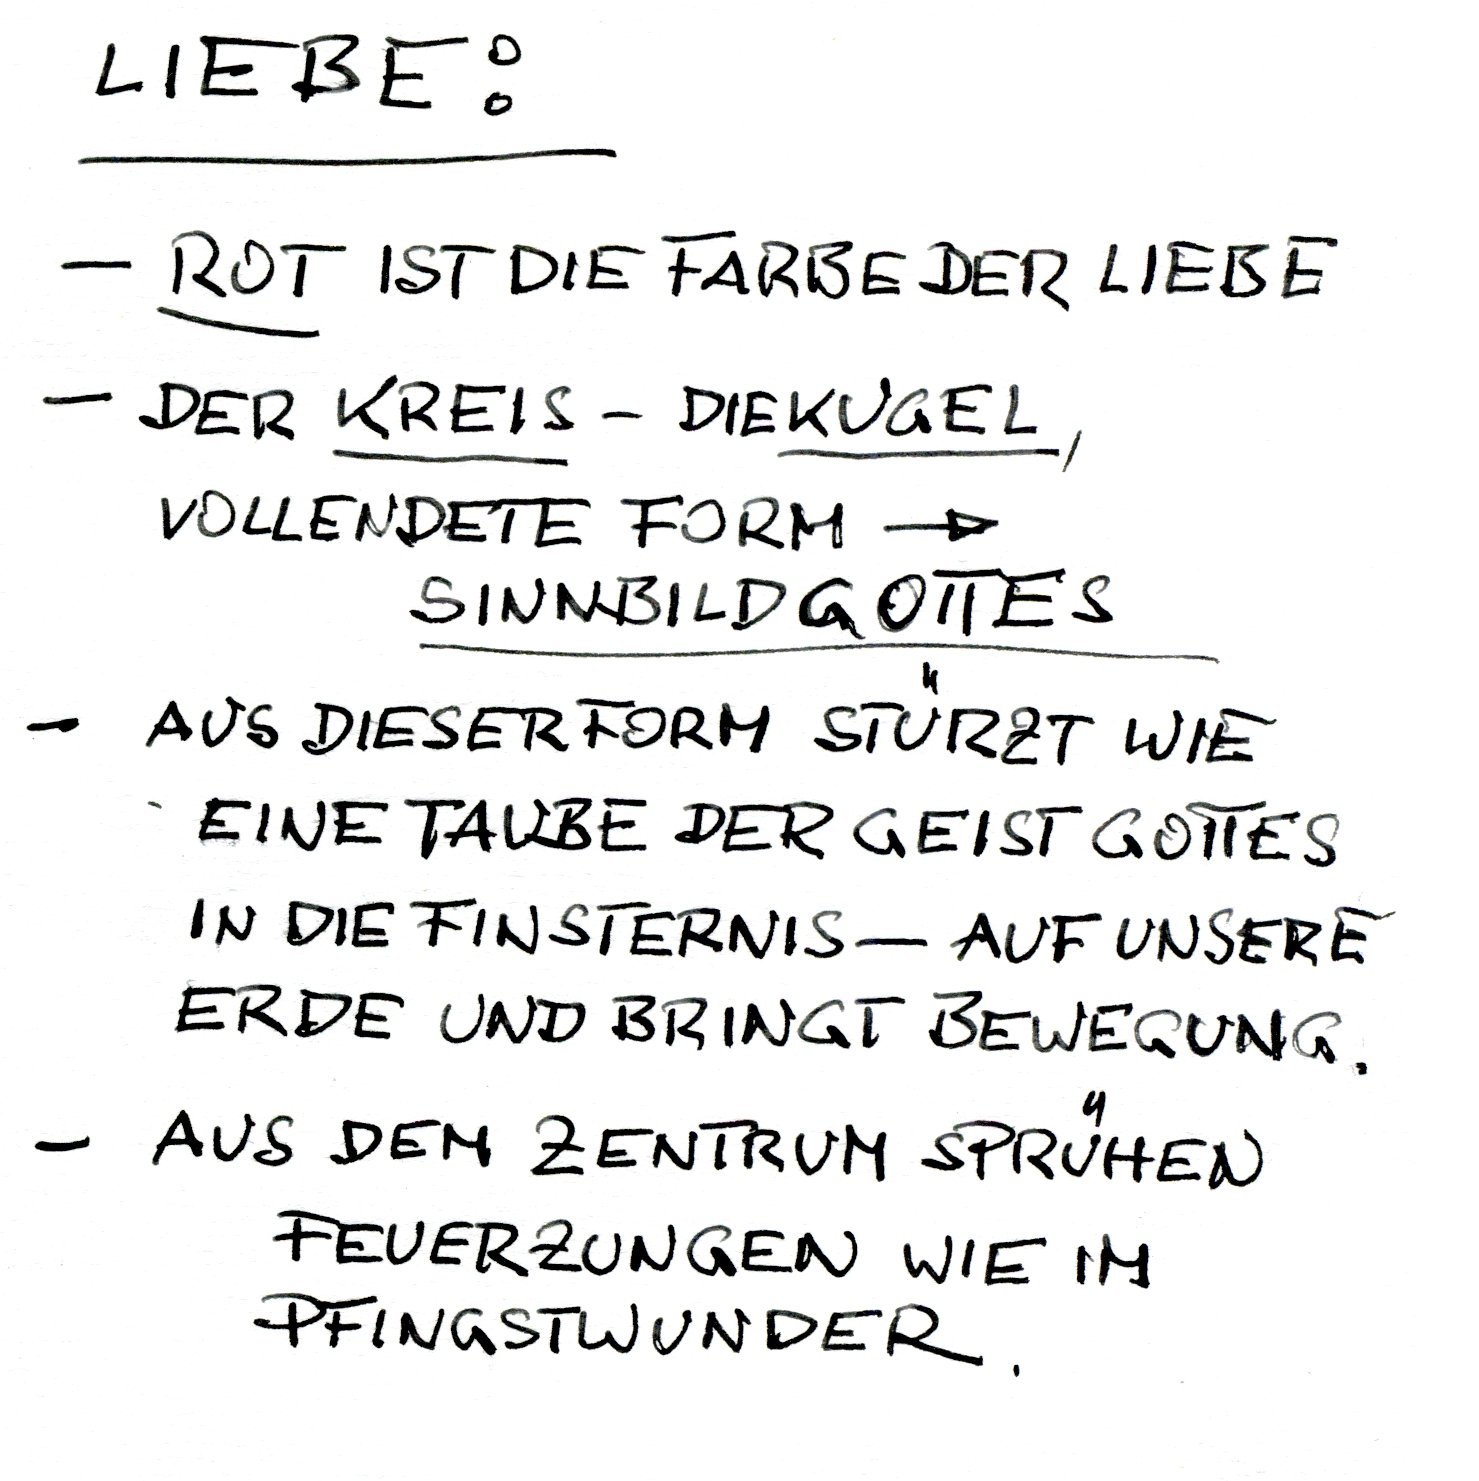 LIEBE:
– ROT IST DIE FARBE DER LIEBE
– DER KREIS – DIE KUGEL,
VOLLENDETE FORM →
SINNBILD GOTTES
– AUS DIESER FORM STÜRZT WIE
EINE TAUBE DER GEIST GOTTES
IN DIE FINSTERNIS – AUF UNSERE
ERDE UND BRINGT BEWEGUNG.
– AUS DEM ZENTRUM SPRÜHEN
FEUERZUNGEN WIE IM
PFINGSTWUNDER.